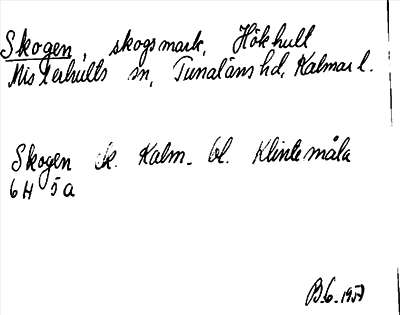 Skogen, skogsmark, Hökhult
Misterhults sn, Tunaläns hd, Kalmar l.
Skogen ek. Kalm. bl. Klintemåla
6H 5a